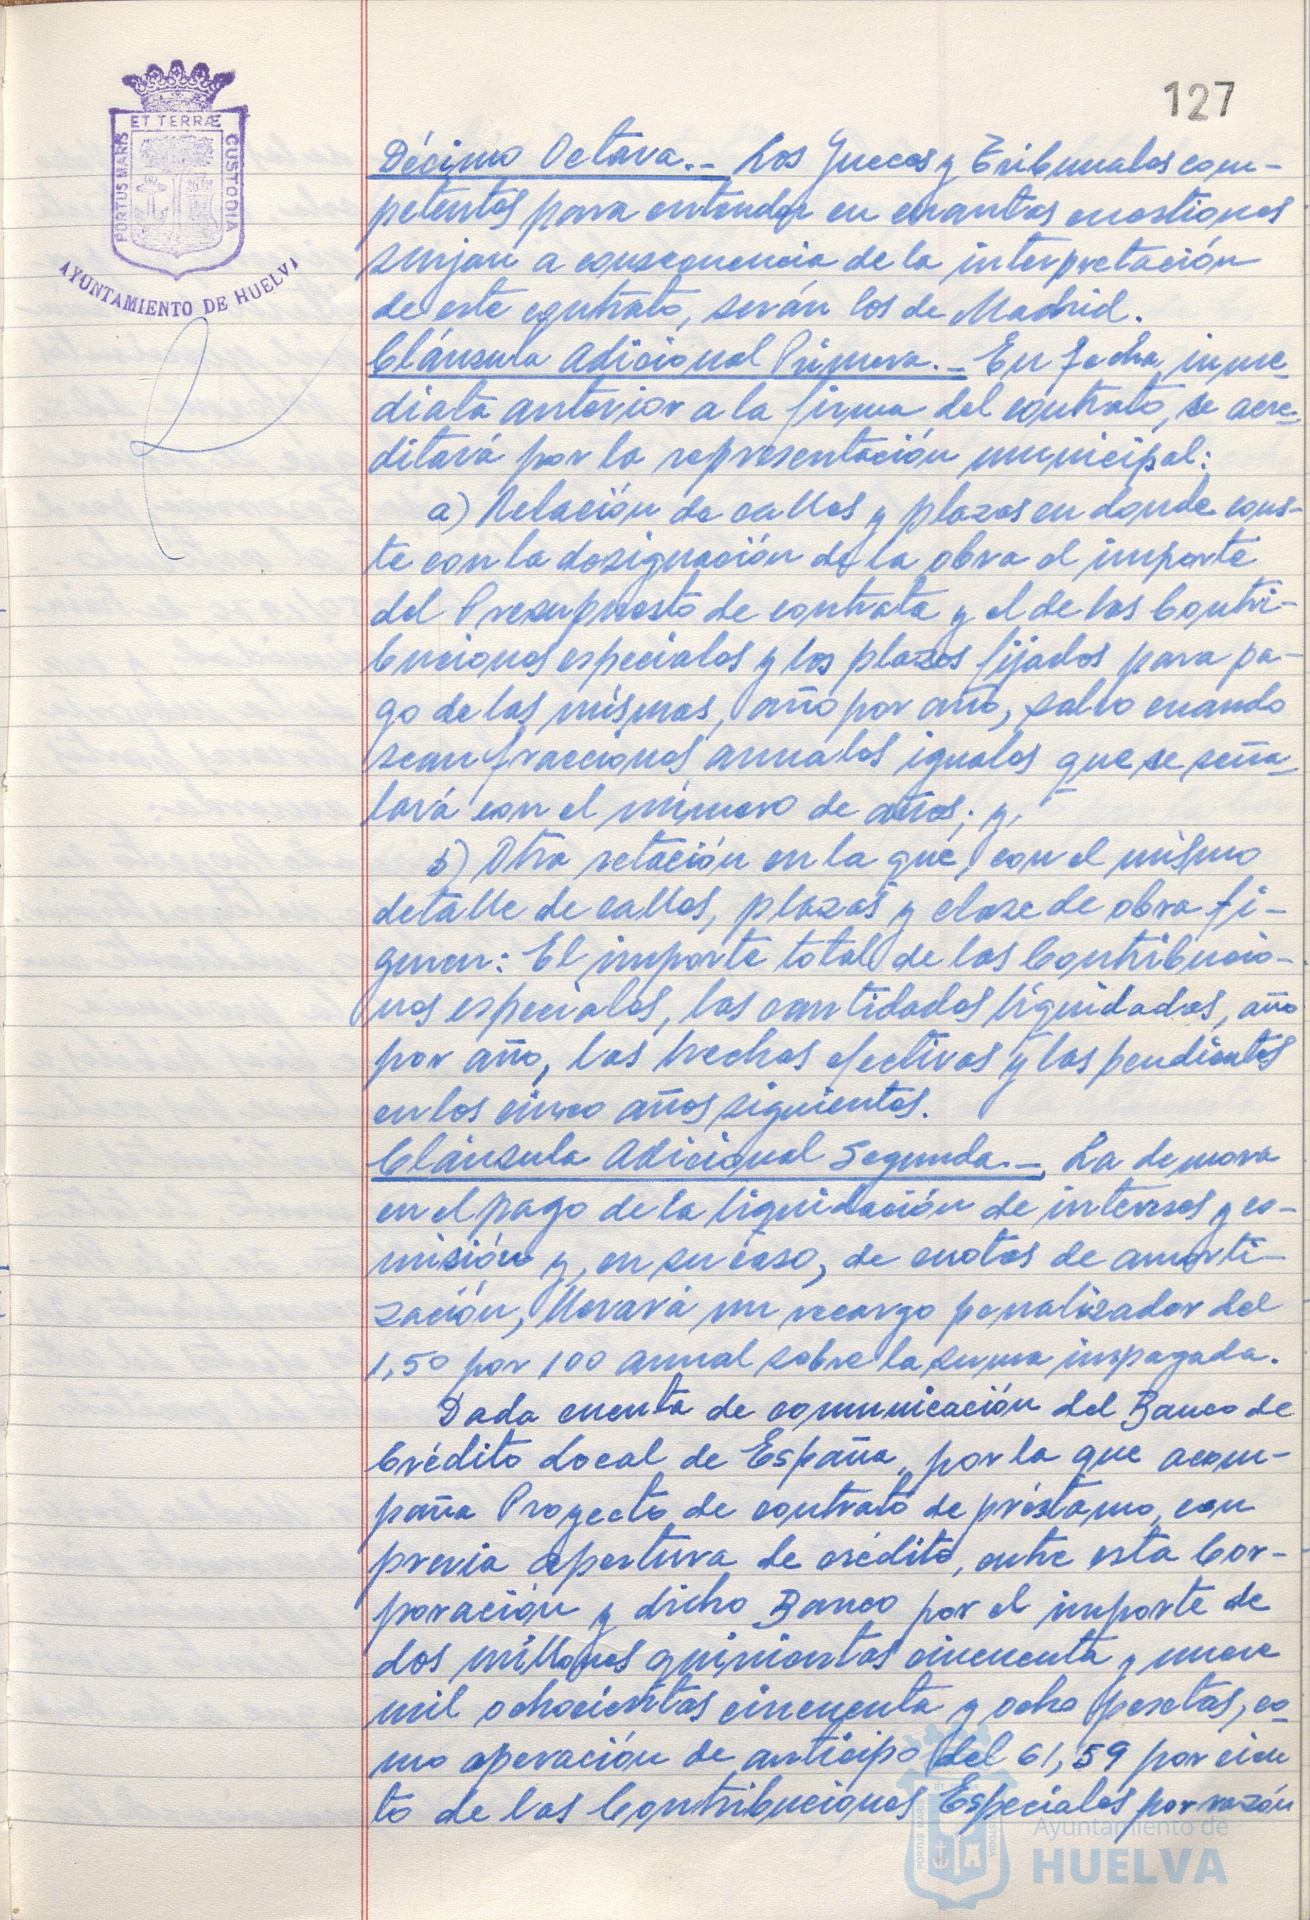 127
ET TERRÆ
PORTUS MARIS
CUSTODIA
AYUNTAMIENTO DE HUELVA
Décimo Octava.- Los Jueces y Tribunales com-
petentes para entender en cuantas cuestiones
surjan a consequencia de la interpretación
de este contrato, serán los de Madrid.
Cláusula Adicional Primera.- En fecha inme-
diata anterior a la firma del contrato, se acre-
ditará por la representación municipal:
a) Relación de calles y plazas en donde cons-
te con la designación de la obra el importe
del Presupuesto de contrata y el de las Contri-
buciones especiales y los plazos fijados para pa-
go de las mismas, año por año, salvo cuando
sean fracciones anuales iguales que se seña-
lará con el número de años; y,
b) Otra relación en la que, con el mismo
detalle de calles, plazas y clase de obra fi-
guren: El importe total de las Contribucio-
nes especiales, las cantidades liquidadas, año
por año, las hechas efectivas y las pendientes
en los cinco años siguientes.
Cláusula Adicional Segunda.- La demora
en el pago de la liquidación de intereses y co-
misión y, en su caso, de cuotas de amorti-
zación, llevará un recargo penalizador del
1,50 por 100 anual sobre la suma impagada.
Dada cuenta de comunicación del Banco de
Crédito Local de España, por la que acom-
paña Proyecto de contrato de préstamo, con
previa apertura de crédito, entre esta Cor-
poración y dicho Banco por el importe de
dos millones quinientas cincuenta y nueve
mil ochocientas cincuenta y ocho pesetas, co-
mo operación de anticipo del 61,59 por cien
to de las Contribuciones Especiales por razón
Ayuntamiento de
HUELVA